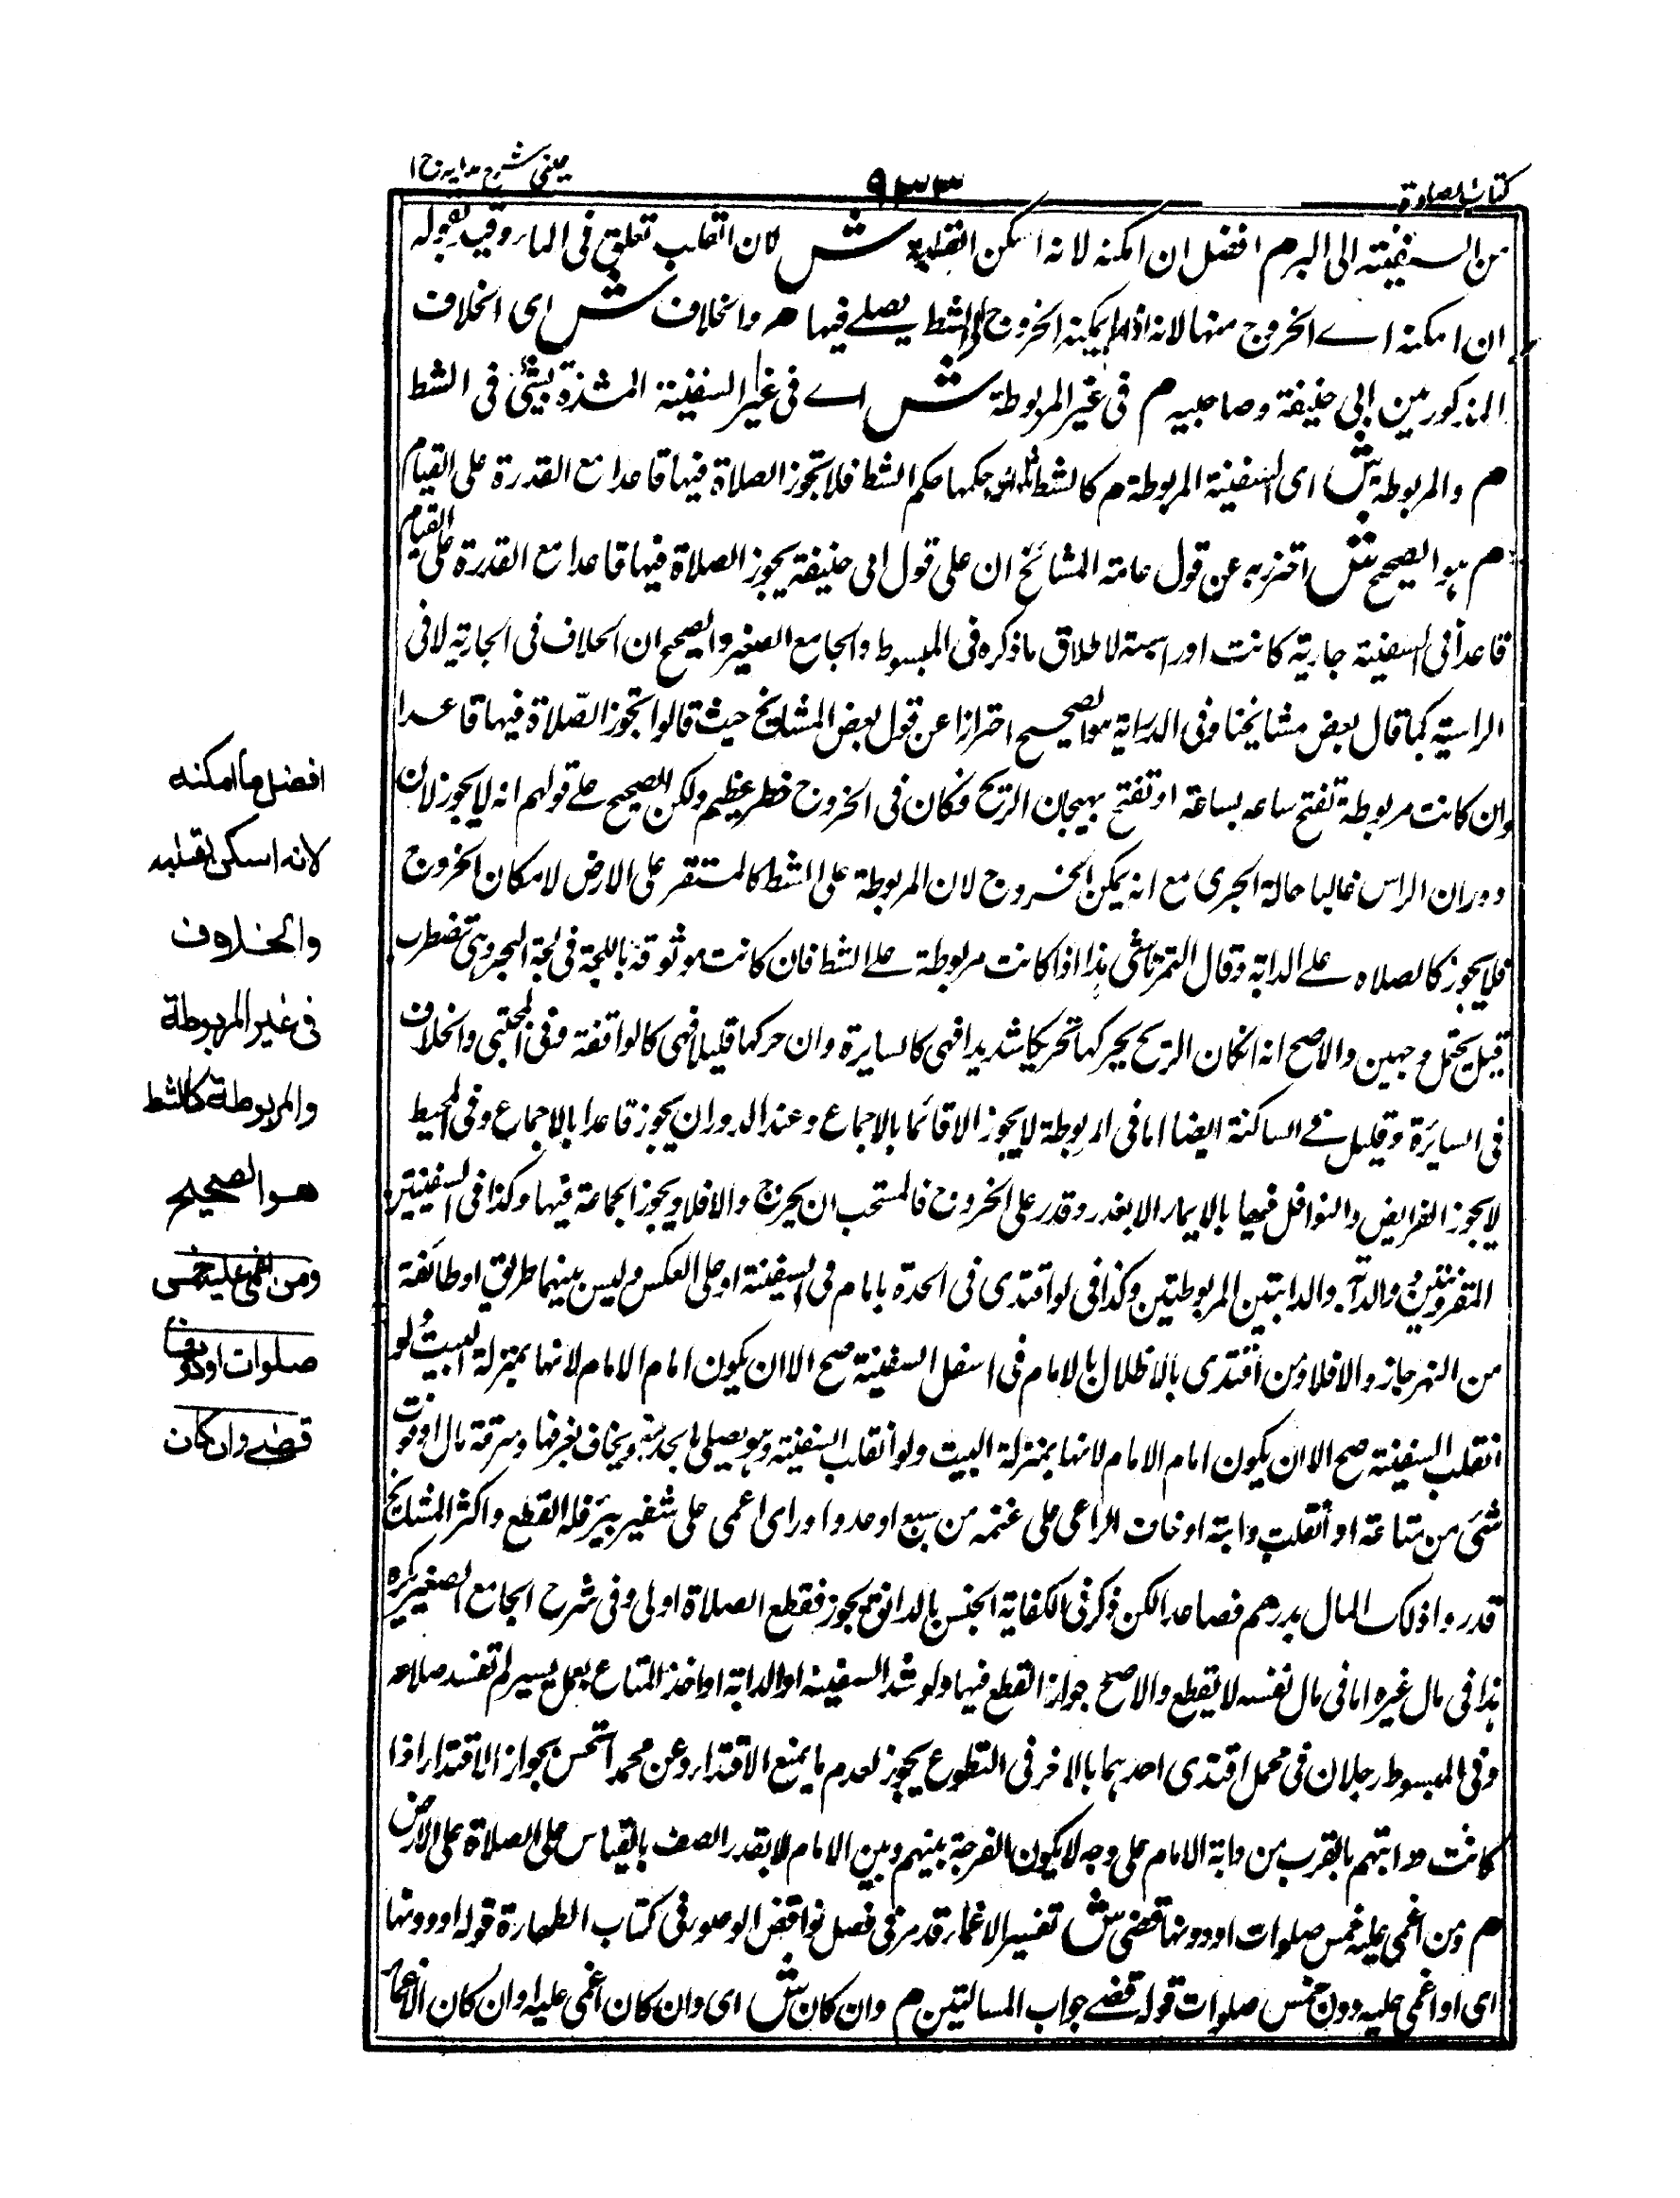 كتاب الصلوة
٩٣٣
عينى شرح هدايه ج ١
من السفينة الى البر م افضل ان امكنه لانه اسكن لقلبه ش لان القلب تعلق فى الماء وقيد بقوله
ان امكنه اے الخروج منها لانه اذا لم يمكنه الخروج الى الشط يصلے فيها م والخلاف ش اى الخلاف
المذكور بين ابى حنيفة وصاحبيه م فى غير المربوطة ش اے فى غير السفينة المشدة بشئ فى الشط
م والمربوطة ش اى السفينة المربوطة م كالشط ش حكمها حكم الشط فلا تجوز الصلاة فيها قاعدا مع القدرة على القيام
م هو الصحيح ش احترز به عن قول عامة المشائخ ان على قول ابى حنيفة يجوز الصلاة فيها قاعدا مع القدرة على القيام
قاعدا فى السفينة جارية كانت اوراسية لاطلاق ما ذكره فى المبسوط والجامع الصغير والصحيح ان الخلاف فى الجارية لا فى
الراسية كما قال بعض مشايخنا وفى الدراية هو الصحيح احترازا عن قول بعض المشايخ حيث قالوا تجوز الصلاة فيها قاعدا
وان كانت مربوطة تفتح ساعه بساعة او تفتح بهيجان الريح فكان فى الخروج خطر عظيم ولكن الصحيح على قولهم انه لا يجوز لان
دوران الراس غالبا حالة الجرى مع انه يمكن الخروج لان المربوطة على الشط كالمستقر على الارض لامكان الخروج
فلا يجوز كالصلاه على الدابة وقال التمرتاشى هذا اذا كانت مربوطة على الشط فان كانت موثوقة باللجة فى لجة البحر وهى تضطرب
قيل يحتمل وجهين والاصح انه ان كان الريح يحركها تحريكا شديدا فهى كالسايرة وان حركها قليلا فهى كالواقفة وفى المجتبى والخلاف
فى السايرة وقليل فى الساكنة ايضا اما فى المربوطة لا يجوز الا قائما بالاجماع وعند الدوران يجوز قاعدا بالاجماع وفى المحيط
لا يجوز الفرايض والنوافل فيها بالايماء الا بعذر وقدر على الخروج فالمستحب ان يخرج والا فلا ويجوز الجماعة فيها وكذا فى السفينتين
المقرونتين والدابتين المربوطتين وكذا فى لو اقتدى فى الحدة بامام فى السفينة او على العكس وليس بينهما طريق او طائفة
من النهر جاز والا فلا ومن اقتدى بالاظلال بالامام فى اسفل السفينة صح الا ان يكون امام الامام لانها بمنزلة البيت ولو
انقلب السفينة صح الا ان يكون امام الامام لانها بمنزلة البيت ولو انقلب السفينة وهو يصلى ويخاف بغرقها وسرقة مال او فوت
شئ من متاعه او انقلبت دابته او خاف الراعى على غنمه من سبع او عدو او راى اعمى على شفير بئر فله القطع واكثر المشايخ
قدروا ذلك المال بدرهم فصاعدا لكن ذكر فى الكفاية الجنس بالدانق يجوز فقطع الصلاة اولى وفى شرح الجامع الصغير بكره
هذا فى مال غيره اما فى مال نفسه لا يقطع والاصح جواز القطع فيها ولو شد السفينة او الدابة او اخذ المتاع بعمل يسير لم تفسد صلاته
وفى المبسوط رجلان فى محمل اقتدى احدهما بالاخر فى التطوع يجوز لعدم ما يمنع الاقتداء وعن محمد استحسن بجواز الاقتداء اذا
كانت دوابتهم بالقرب من دابة الامام على وجه لا يكون الفرجة بينهم وبين الامام الا بقدر الصف بالقياس على الصلاة على الارض
م ومن اغمى عليه خمس صلوات او دونها قضى ش تفسير الاغماء قد مر فى فصل نواقض الوضوء فى كتاب الطهارة قوله او دونها
اى او اغمى عليه دون خمس صلوات قوله قضے جواب المسالتين م وان كان ش اى وان كان اغمى عليه او ان كان الاغماء
افضل ما امكنه
لانه اسكن لقلبه
والخلاف
فى غير المربوطة
والمربوطة كالشط
هو الصحيح
ومن اغمى عليه خمس
صلوات او دونها
قضے وان كان